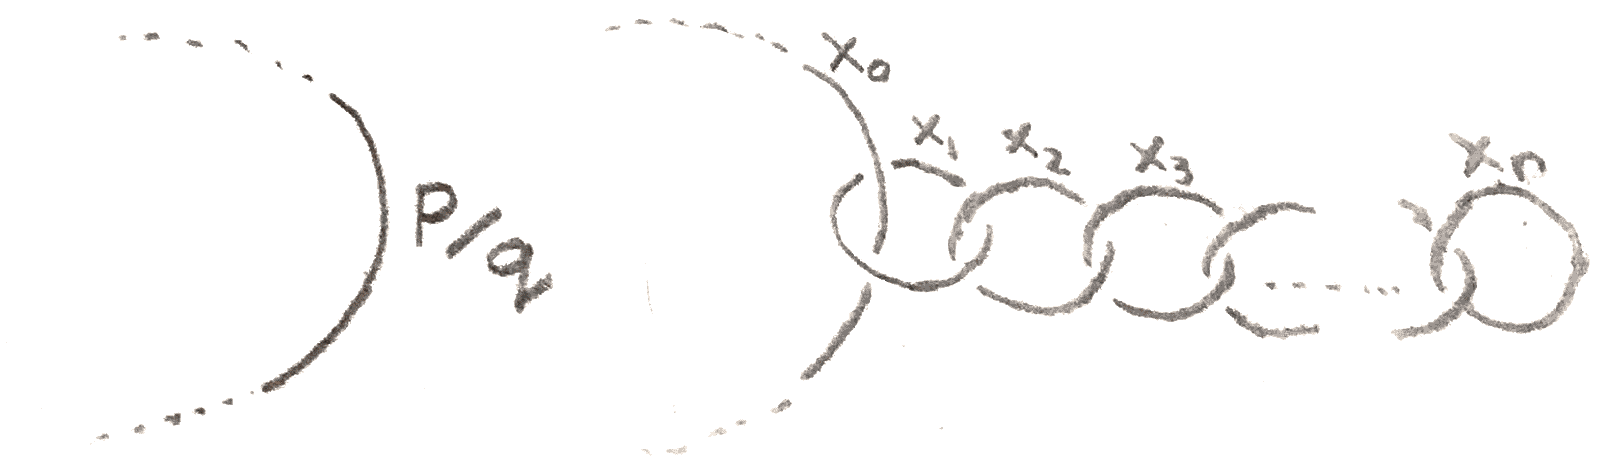 P/q
x₀ x₁ x₂ x₃ xₙ